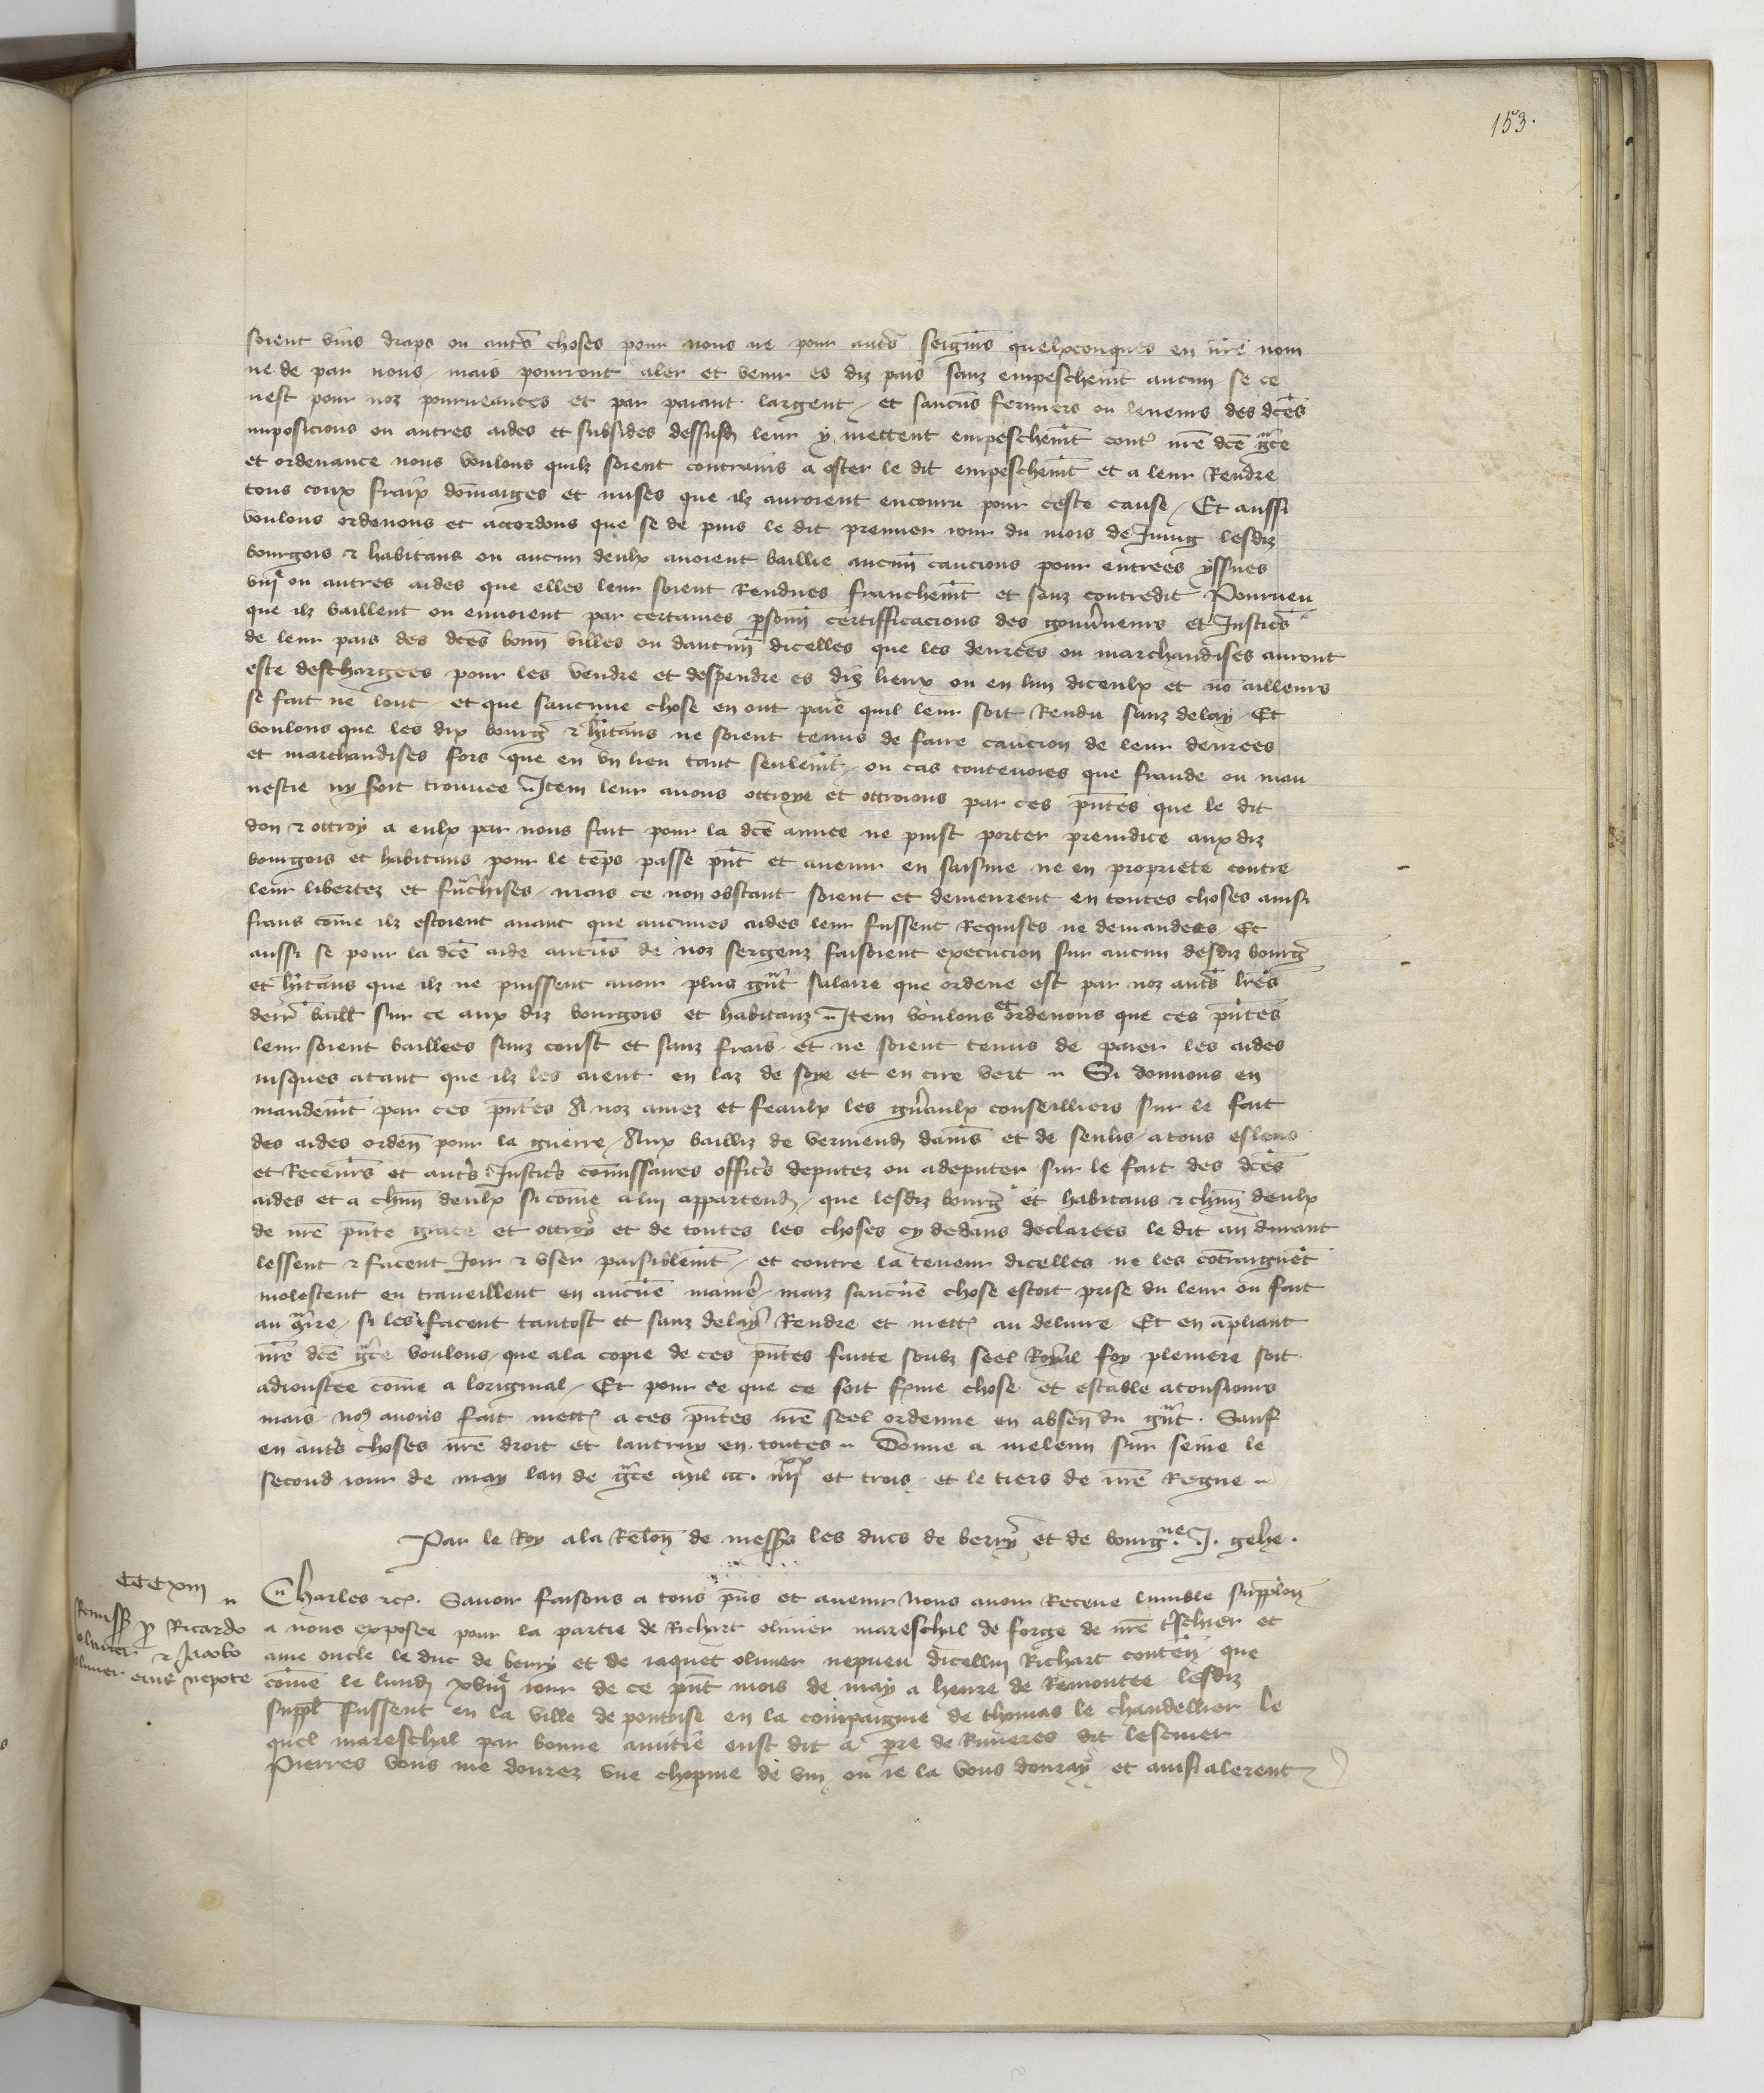 153.
soient vins draps ou autrs choses pour nous ne pour autrs seigneurs quelxconques en nre nom
ne de par nous / mais pourront aler et venir es diz pais sanz empeschemt aucun se ce
nest pour noz pourveances et par paiant largent / et saucuns fermiers ou leveurs des dces
imposicions ou autres aides et subsides dessusd leur y mettent empeschemt contr nre dce grce
et ordenance nous voulons quilz soient contrains a oster le dit empeschemt et a leur Rendre
tous coux fraiz domaiges et mises que ilz auroient encouru pour ceste cause / Et aussi
voulons ordenons et accordons que se de puis le dit premier iour du mois de Juing lesdiz
bourgois & habitans ou aucun deulx avoient baillie aucun caucions pour entrees yssues
viije ou autres aides que elles leur soient Rendues franchemt et sanz contredit Pourveu
que ilz baillent ou envoient par certaines psonn certifficacions des gouvrneurs et Justics
de leur pais des dces bonn villes ou daucun dicelles que les denrees ou marchandises auront
este deschargees pour les vendre et despendre es diz lieux ou en lun diceulx et no ailleurs
se fait ne lont / et que saucune chose en ont paie quil leur soit Rendu sanz delay / Et
voulons que les diz bourg & hitans ne soient tenus de faire caucion de leur denrees
et marchandises fors que en vn lieu tant seulemt / ou cas toutevoies que fraude ou mau
vestie ny soit trouvee Item leur avons ottroye et ottroions par ces pntes que le dit
don & ottroy a eulx par nous fait pour la dce annee ne puist porter preiudice aux diz
bourgois et habitans pour le teps passe pnt et avenir en saisine ne en propriete contre
leur libertez et frnchises / mais ce non obstant soient et demeurent en toutes choses ainsi
frans come ilz estoient avant que aucunes aides leur fussent Requises ne demandees / Et
aussi se pour la dce aide aucuns de noz sergenz faisoient execucion sur aucun desdiz bourg
et hitans que ilz ne puissent avoir plus grnt salaire que ordene est par noz autrs lres
derr baill sur ce aux diz bourgois et habitanz Item voulons et ordenons que ces pntes
leur soient baillees sanz coust et sanz frais / et ne soient tenus de paier les aides
iusques atant que ilz les aient en laz de soye et en cire vert Si donnons en
mandemt par ces pntes A noz amez et feaulx les gnraulx conseilliers sur le fait
des aides orden pour la guerre / Aux bailliz de vermend damis et de senlis / atous esleus
et Receveurs et autrs Justicrs comissaires officrs deputez ou adeputer sur le fait des dces
aides et a chun deulx si come alui appartend / que lesdiz bourg et habitans & chun deulx
de nre pnte grace et ottroy et de toutes les choses cy dedans declarees le dit an durant
lessent & facent Joir & vser paisiblemt / et contre la teneur dicelles ne les cotraignet
molestent en traveillent en aucune manie / maiz saucune chose estoit prise du leur ou fait
au grire / si les facent tantost et sanz delay Rendre et mettr au delivre Et en apliant
nre dce grce voulons / que ala copie de ces pntes faitte soubz seel Royal foy pleniere soit
adioustee come a loriginal / Et pour ce que ce soit fme chose et estable atousiours
mais / no9 avons fait mettr a ces pntes nre seel ordenne en absen du grnt . Sauf
en autrs choses nre droit et lautruy en toutes Donne a meleun sur seine le
second iour de may lan de grce mil ccc. iiijxx et trois / et le tiers de nre Regne
Par le Roy ala Relon de messrs les ducs de berry et de bourgne. J. gehe .
CCCxiii
Remiss p Ricardo
olivier & Jacobo
olivier eius nepote
Charles &c. Savoir faisons a tous pns et avenir Nous avoir Receue lumble supplon
a nous exposee pour la partie de Richart olivier mareschal de forge de nre trschier et
ame oncle le duc de berry et de iaquet olivier nepveu dicellui Richart conten / que
come le lundi xviije iour de ce pnt mois de may a heure de Remontee lesdiz
suppl fussent en la ville de pontoise en la compaignie de thomas le chandellier le
quel mareschal par bonne amitie eust dit a pre de Rivieres dit lescuier
Pierres vous me donrez vne chopine de vin ou ie la vous donray / et ainsi alerent